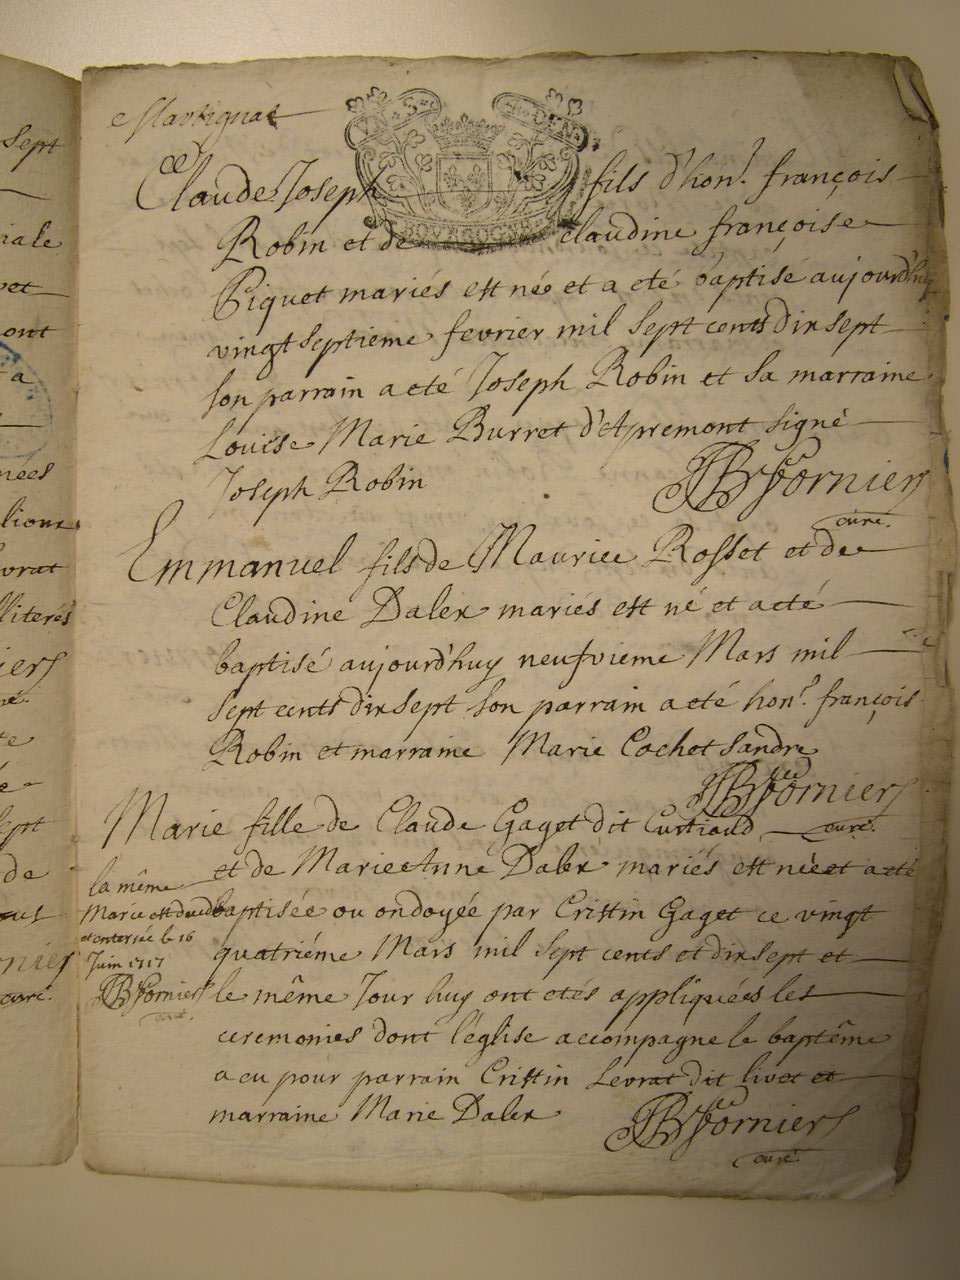 sept
iale
vet
ont
a
nées
lioux
vrat
lliterés
iers
te
é
sept
de
niers
curé
Martignat
VN S. 8 DEN.
BOVRGOGNE
Claude Joseph fils d'hon.r françois
Robin et de claudine françoise
Piquet mariés est née et a eté baptisé aujourd'huy
vingt septieme fevrier mil sept cents dix sept
son parrain a eté Joseph Robin et sa marraine
Louise Marie Burret d'Apremont signé
Joseph Robin JB Fornier
curé.
Emmanuel fils de Maurice Rosset et de
Claudine Daler mariés est né et a eté
baptisé aujourd'huy neufvieme Mars mil
sept cents dix sept son parrain a eté hon.r françois
Robin et marraine Marie Cochet Sandre
JB Fornier
curé.
Marie fille de Claude Gaget dit Curtiould
et de Marie Anne Daler mariés est née et a eté
baptisée ou ondoyée par Cristin Gaget ce vingt
quatriéme Mars mil sept cents et dix sept et
le même Jour huy ont etés appliquées les
ceremonies dont l'église accompagne le baptême
a eu pour parrain Cristin Levrat dit livet et
marraine Marie Daler JB Fornier
curé.
la même
Marie est decedée
et enterrée le 16
Juin 1717
JB Fornier
curé.